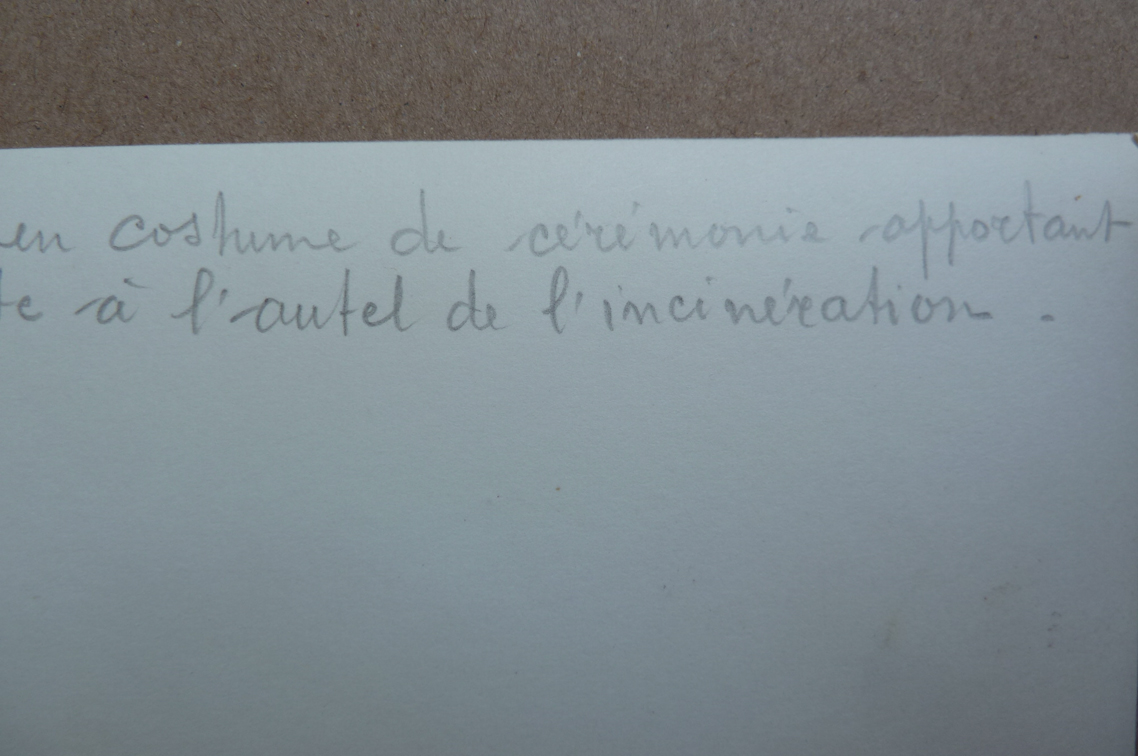 en costume de cérémonie apportant
te à l'autel de l'incinération .